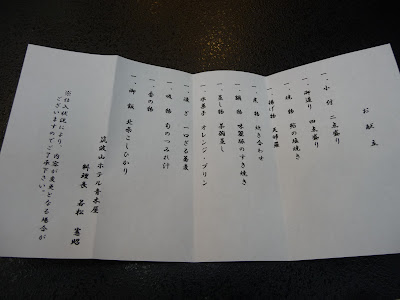 お献立
一、小付 二点盛り
一、御造り 四点盛り
一、焼物 鮎の塩焼き
一、揚げ物 天婦羅
一、煮物 炊き合わせ
一、鍋物 味麗豚のすき焼き
一、蒸し物 茶碗蒸し
一、水菓子 オレンジ・プリン
一、凌ぎ 一口ざる蕎麦
一、吸物 旬のつみれ汁
一、香の物
一、御飯 北条こしひかり
筑波山ホテル青木屋
料理長 若松 憲昭
※仕入状況により、内容が変更となる場合が
ございますのでご了承下さい。